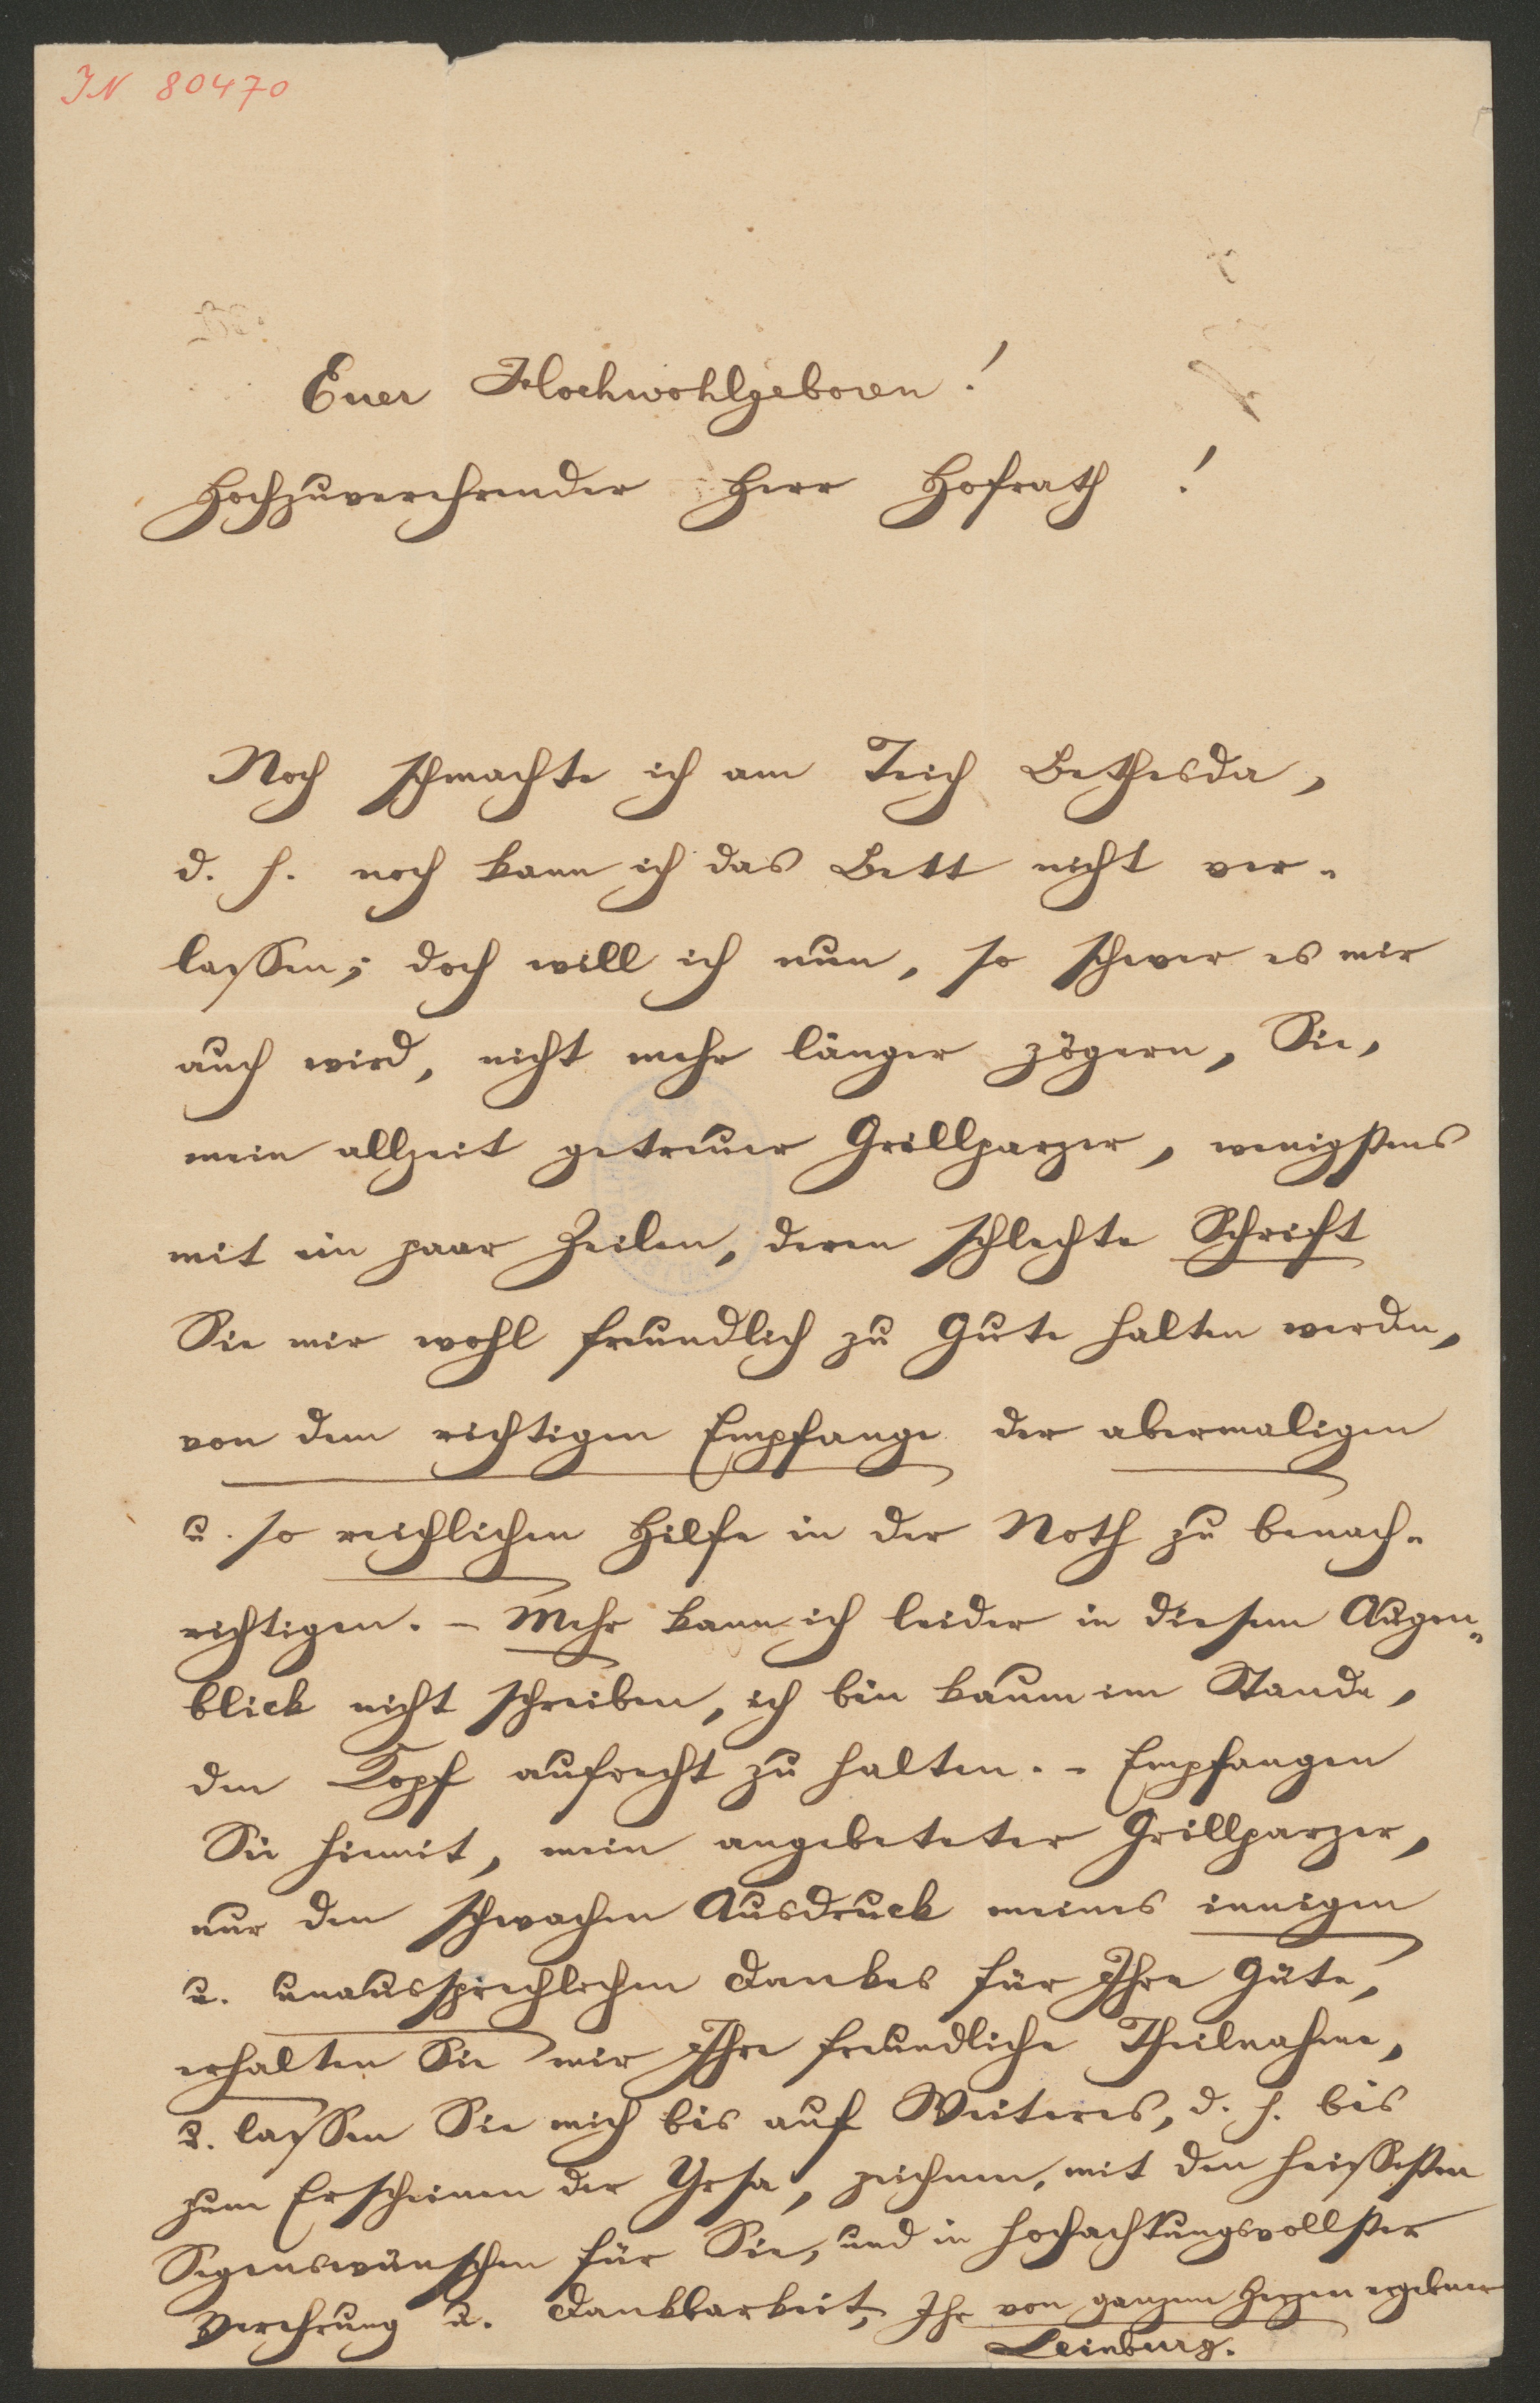 IN 80470
Euer Hochwohlgeboren!
Hochzuverehrender Herr Hofrath!
Noch schmachte ich am Teich Bethesda,
d. h. noch kann ich das Bett nicht ver-
lassen; doch will ich nun, so schwer es mir
auch wird, nicht mehr länger zögern, Sie,
mein allzeit getreuer Grillparzer, wenigstens
mit ein paar Zeilen, deren schlechte Schrift
Sie mir wohl freundlich zu Gute halten werden,
von dem richtigen Empfange der abermaligen
u. so reichlichen Hilfe in der Noth zu benach-
richtigen. – Mehr kann ich leider in diesem Augen-
blick nicht schreiben, ich bin kaum im Stande,
den Kopf aufrecht zu halten. – Empfangen
Sie hiemit, mein angebeteter Grillparzer,
nur den schwachen Ausdruck meines innigen
u. unaussprechlichen Dankes für Ihre Güte,
erhalten Sie mir Ihre freundliche Theilnahme,
u. lassen Sie mich bis auf Weiteres, d. h. bis
zum Erscheinen der Ursa, zeichnen, mit den heissesten
Segenswünschen für Sie, und in hochachtungsvollster
Verehrung u. Dankbarkeit, Ihr von ganzem Herzen ergebener
Leinburg.